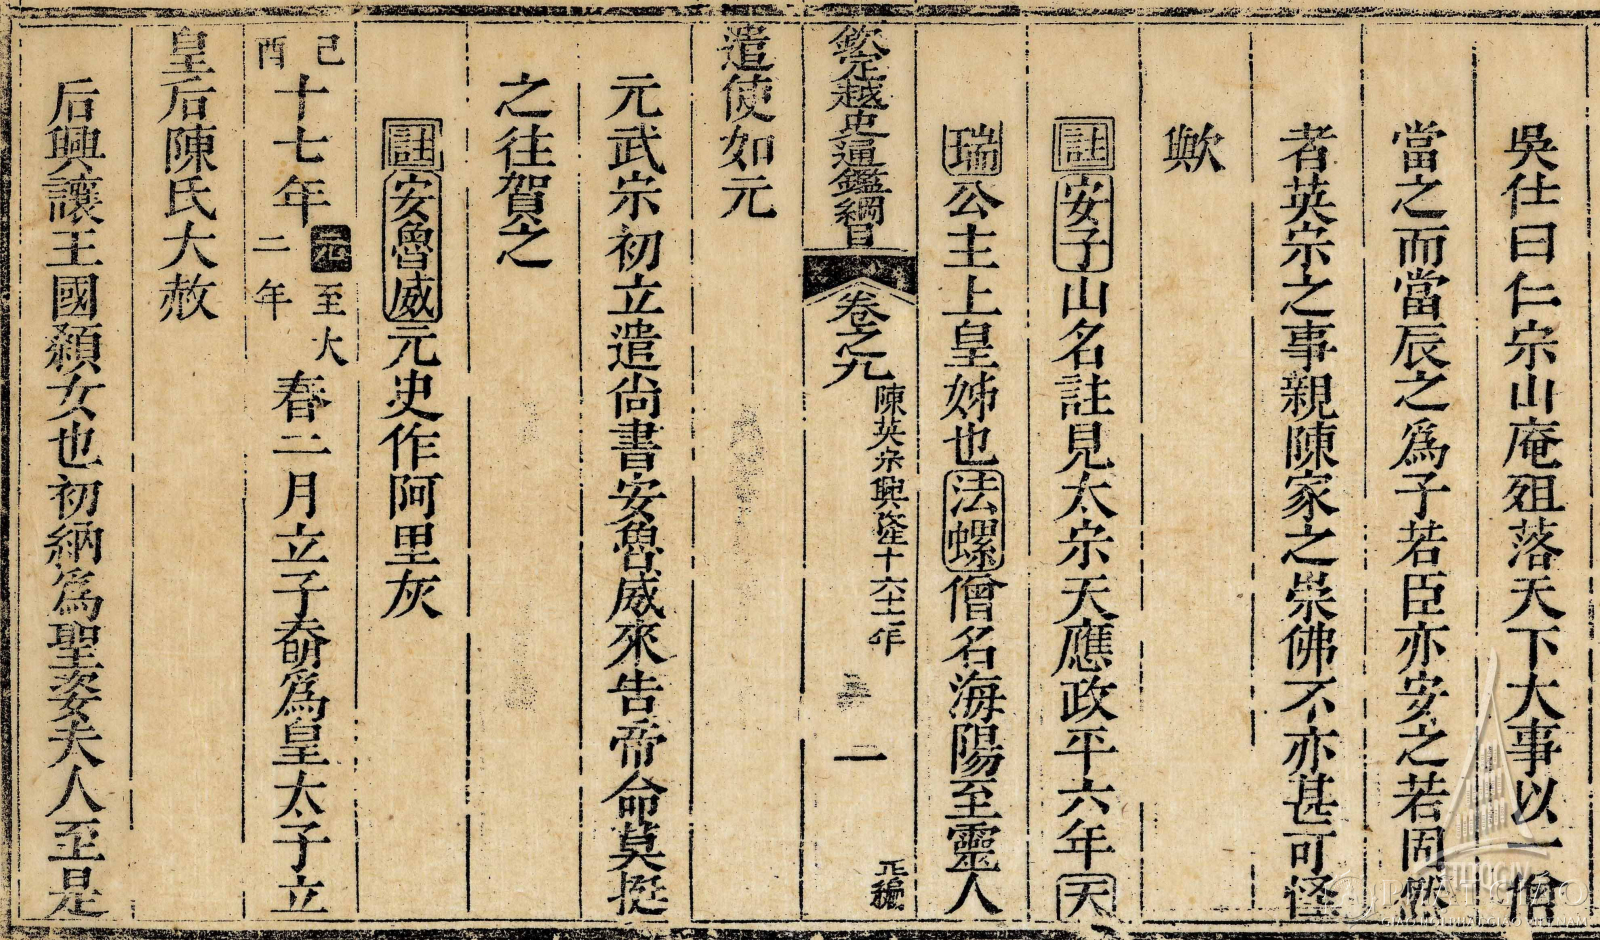 吳仕曰仁宗山庵殂落天下大事以一僧
當之而當辰之爲子若臣亦安之若固然
者英宗之事親陳家之崇佛不亦甚可怪
歟
註安子山名註見太宗天應政平六年天
瑞公主上皇姊也法螺僧名海陽至靈人
欽定越史通鑑綱目 卷之九 陳英宗興隆十六十七年 二 正編
遣使如元
元武宗初立遣尚書安魯威來告帝命莫挺
之往賀之
註安魯威元史作阿里灰
己酉十七年元至大二年春二月立子奣爲皇太子立
皇后陳氏大赦
后興讓王國顙女也初納爲聖姿夫人至是
PHATGIAO
GIAO HOI PHAT GIAO VIET NAM